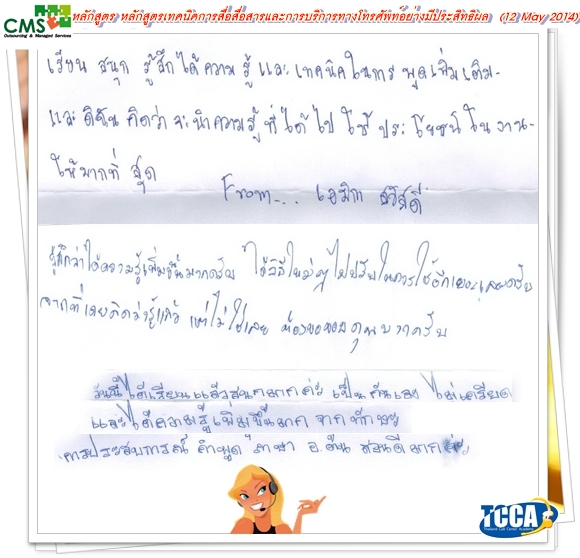 CMS
Outsourcing & Managed Services
หลักสูตร หลักสูตรเทคนิคการสื่อสื่อสารและการบริการทางโทรศัพท์อย่างมีประสิทธิผล (12 May 2014)
เรียน สนุก รู้สึกได้ความรู้ และ เทคนิคในการ พูดเพิ่มเติม
และ ดิฉัน คิดว่า จะนำความรู้ ที่ได้ ไป ใช้ ประโยชน์ ใน งาน
ให้มากที่ สุด
From... สวัสดี
รู้สึกว่าได้ความรู้เพิ่มขึ้นมากครับ ได้วิธีใหม่ๆไปปรับในการใช้อีกเยอะเลยครับ
จากที่เคยคิดว่ารู้แล้ว แต่ไม่ใช่เลย ต้องขอขอบคุณมากครับ
วันนี้ได้เรียนแล้วสนุกมากค่ะ เป็นกันเอง ไม่เครียด
และได้ความรู้เพิ่มขึ้นมาก จากทักษะ
การประสบการณ์ คำพูด ภาษา อ. สอนดีมากค่ะ
TCCA
Thailand Call Center Academy